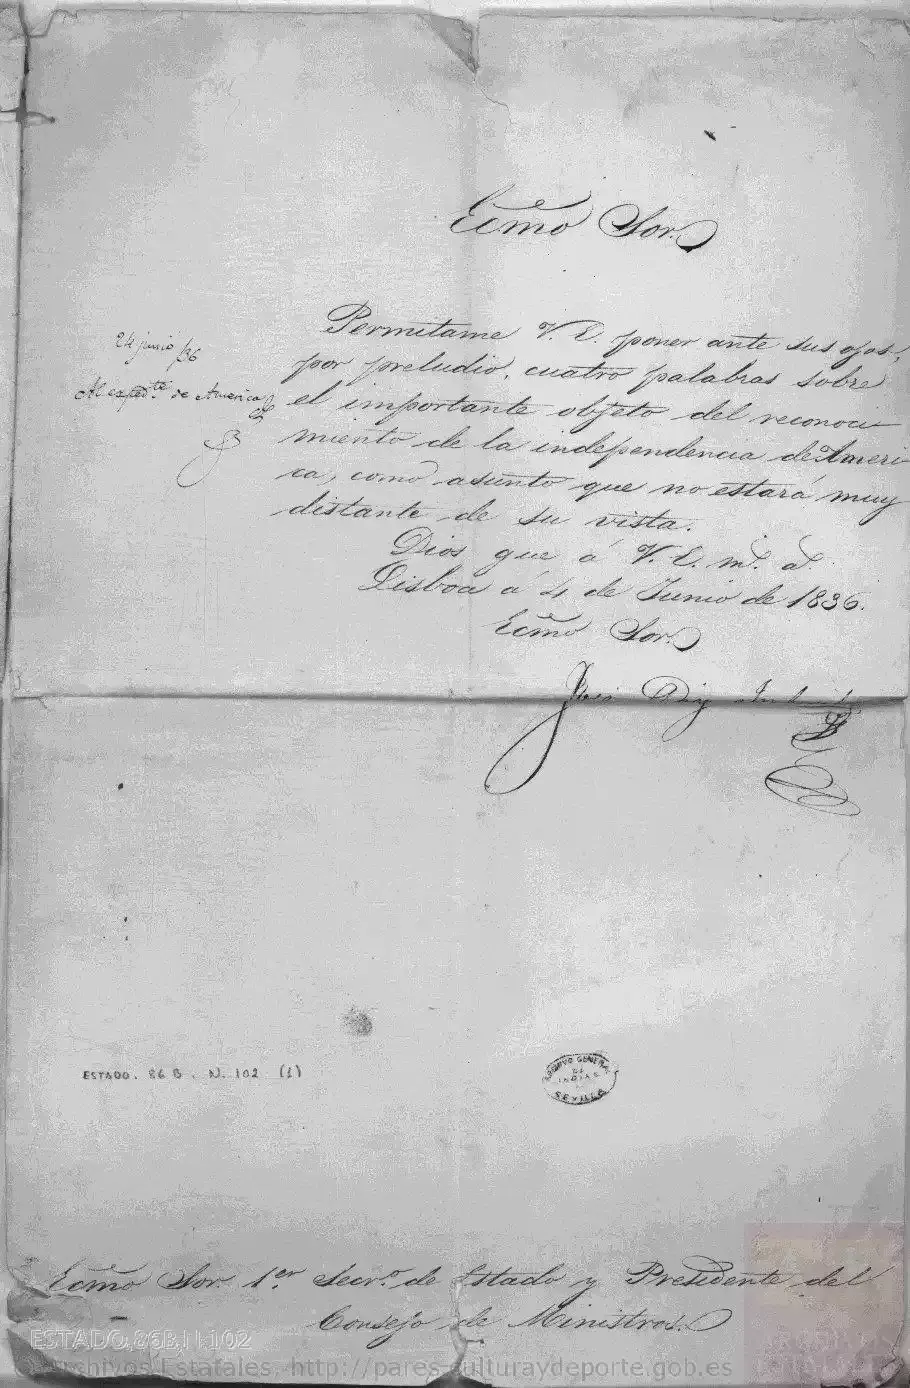 Ecmo Sor.
24 junio /36
Al expedte de America
Permitame V. E. poner ante sus ojos,
por preludio, cuatro palabras sobre
el importante objeto del reconoci-
miento de la independencia de Ameri-
ca, como asunto que no estará muy
distante de su vista.
Dios gue á V. E. ms. as.
Lisboa á 4 de Junio de 1836.
Ecmo Sor.
ESTADO. 86 B. N. 102 (1)
ARCHIVO GENERAL
DE
INDIAS
SEVILLA
Ecmo Sor. 1er Secro. de Estado y Presidente del
Consejo de Ministros.
ESTADO,86B,N.102
Archivos Estatales, http://pares.culturaydeporte.gob.es